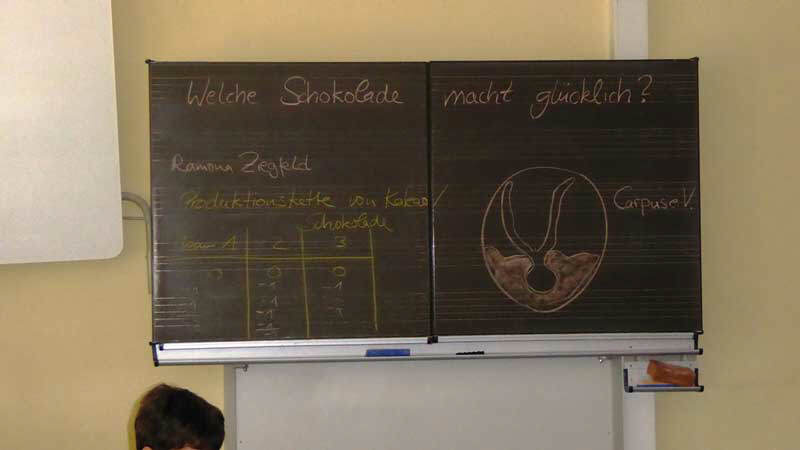 Welche Schokolade macht glücklich?
Ramona Ziegfeld
Produktionskette von Kakao/
Schokolade
1 2 3
0 0 0
-1 -1
-1 -1
-1 -1
-1
Carpus e.V.